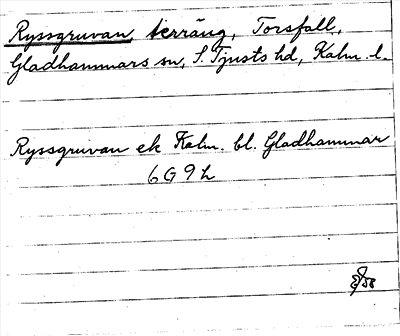 Ryssgruvan, terräng, Torsfall,
Gladhammars sn, S. Tjusts hd, Kalm. l.
Ryssgruvan ek Kalm. bl. Gladhammar
6G9h